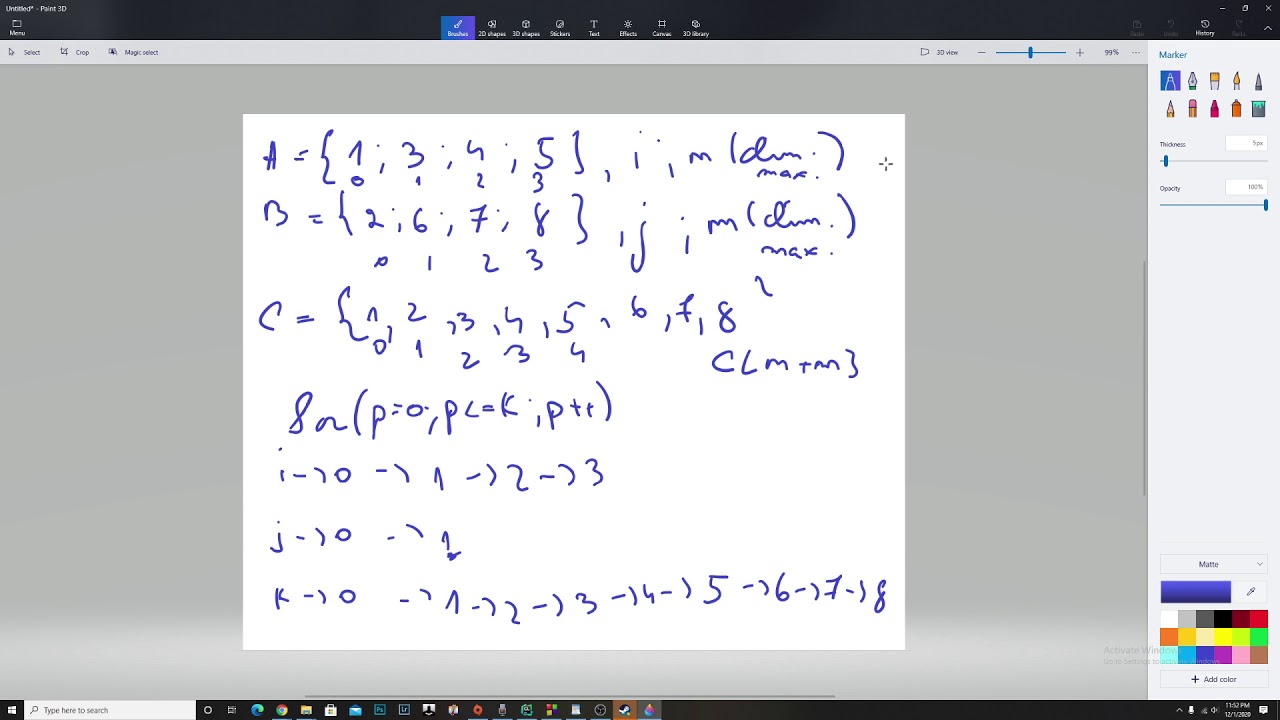 Untitled* - Paint 3D
Menu
Brushes
2D shapes
3D shapes
Stickers
Text
Effects
Canvas
3D library
Paste
Undo
History
Redo
Select
Crop
Magic select
3D view
99%
Marker
Thickness
5px
Opacity
100%
A = { 1 ; 3 ; 4 ; 5 } , i ; n (dim. max.)
0 1 2 3
B = { 2 ; 6 ; 7 ; 8 } , j ; m (dim. max.)
0 1 2 3
C = { 1, 2 , 3 , 4 , 5 , 6 , 7 , 8
0 1 2 3 4
C[m+n]
for(p=0; p<=k; p++)
i -> 0 -> 1 -> 2 -> 3
j -> 0 -> 1
k -> 0 -> 1 -> 2 -> 3 -> 4 -> 5 -> 6 -> 7 -> 8
Matte
Activate Windows
Go to Settings to activate Windows.
Add color
Type here to search
11:52 PM
12/1/2020